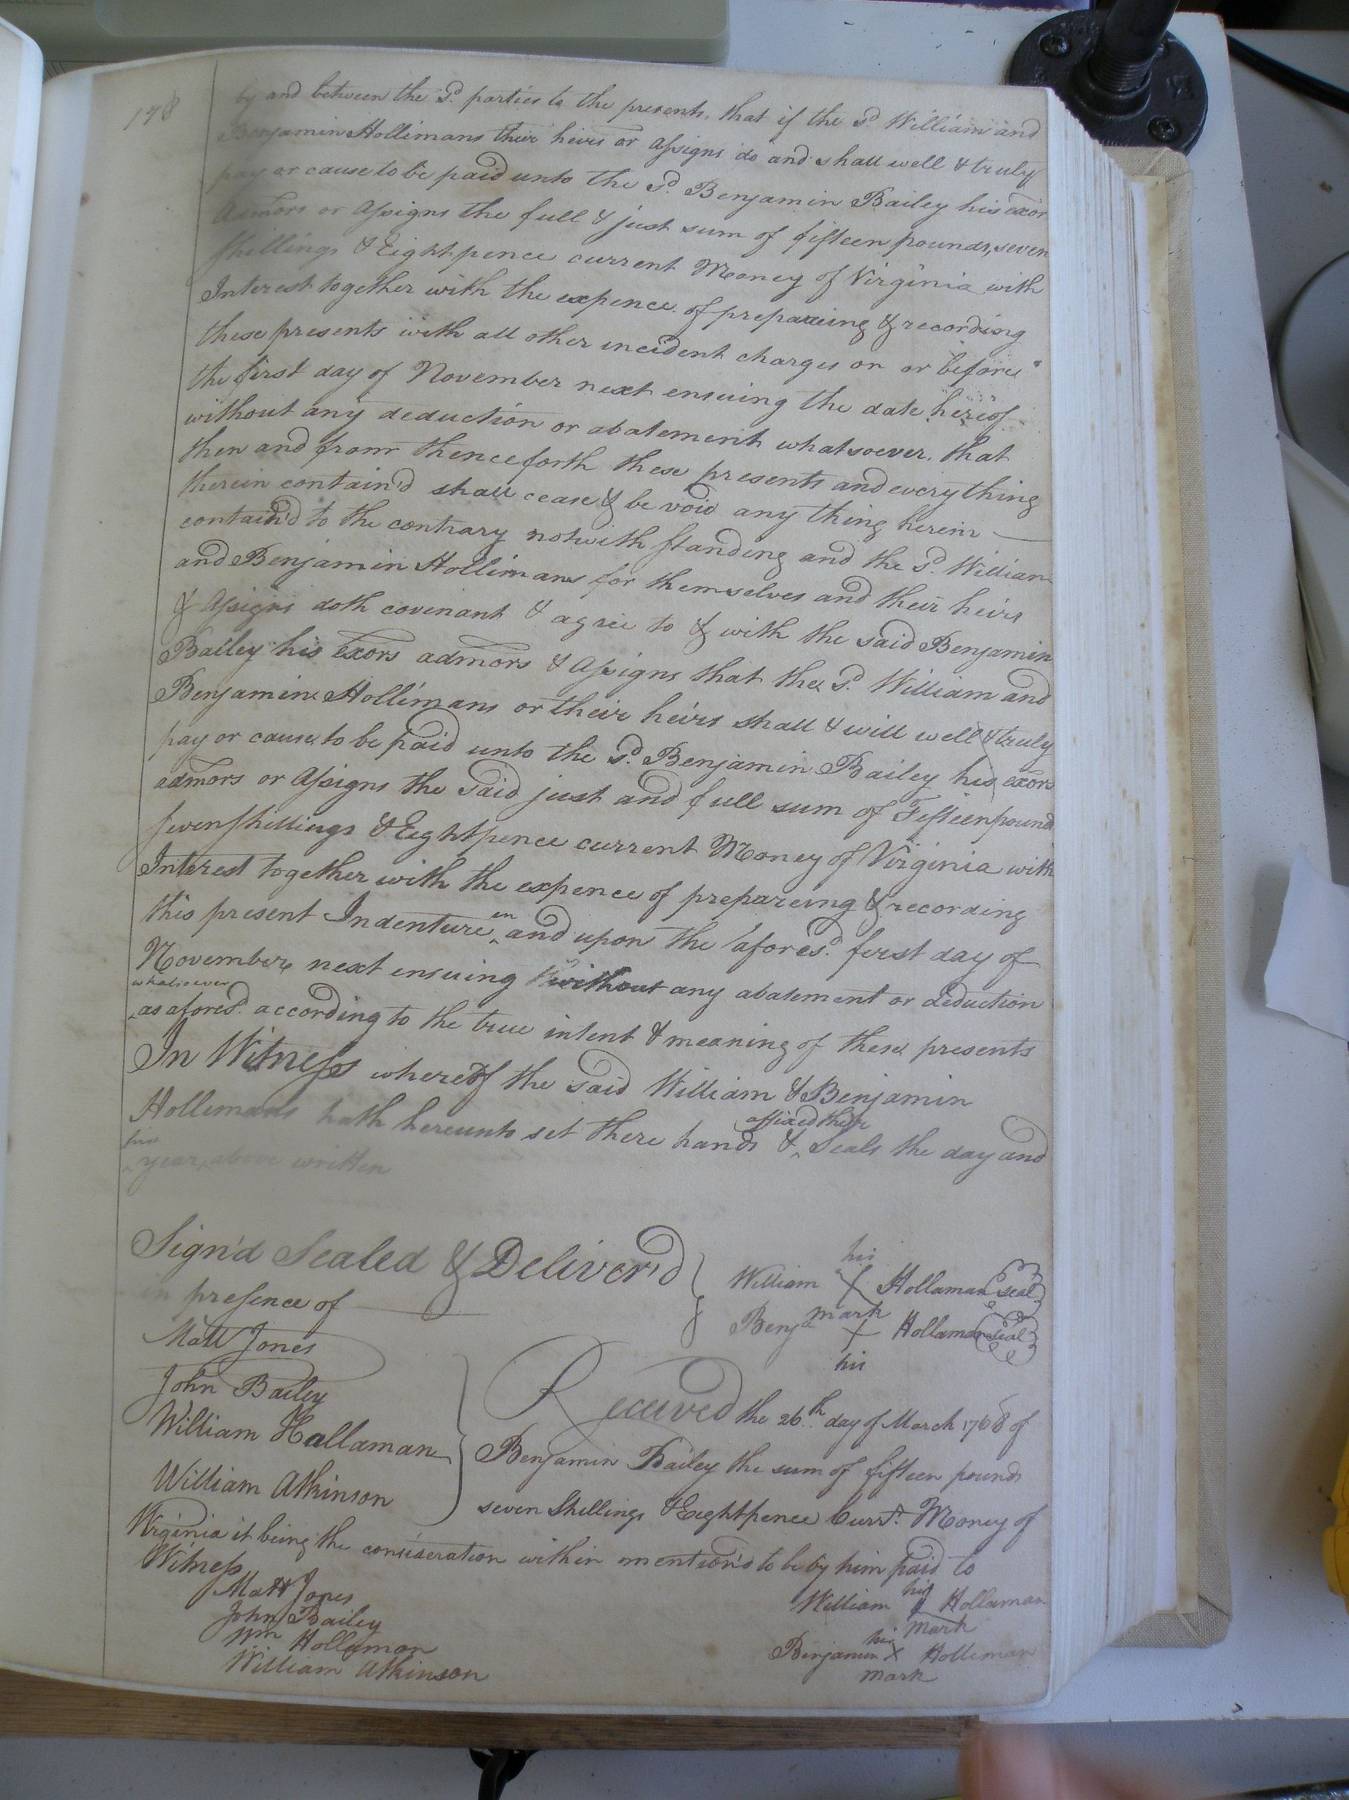 178
by and between the sd. parties to the presents, that if the sd. William and
Benjamin Hollimans their heirs or Assigns do and shall well & truly
pay or cause to be paid unto the sd. Benjamin Bailey his exors
Admors or Assigns the full & just sum of fifteen pounds, seven
shillings & Eight pence current Money of Virginia with
Interest together with the expence of prepareing & recording
these presents with all other incident charges on or before
the first day of November next ensuing the date hereof
without any deduction or abatement whatsoever. that
then and from thenceforth these presents and every thing
therein contain'd shall cease & be void any thing herein
contain'd to the contrary notwithstanding and the sd. William
and Benjamin Hollimans for themselves and their heirs
& Assigns doth covinant & agree to & with the said Benjamin
Bailey his Exors admors & Assigns that the sd. William and
Benjamin Hollimans or their heirs shall & will well & truly
pay or cause to be paid unto the sd. Benjamin Bailey his exors
admors or Assigns the said just and full sum of Fifteen pound
seven shillings & Eight pence current Money of Virginia with
Interest together with the expence of prepareing & recording
this present Indenture in and upon the afores'd. first day of
November next ensuing without any abatement or deduction
whatsoever
as afores'd. according to the true intent & meaning of these presents
In Witness whereof the said William & Benjamin
Hollimans hath hereunto set there hands & affixed their Seals the day and
year above written
Sign'd Sealed & Deliver'd
in presence of
Matt Jones
John Bailey
William Hallaman
William Atkinson
William his X mark Hollaman seal
Benja X his Hollaman seal
Received the 26th day of March 1768 of
Benjamin Bailey the sum of fifteen pounds
seven Shillings & Eight pence Currt. Money of
Virginia it being the consideration within mention'd to be by him paid to
Witness
Matt Jones
John Bailey
Wm Hollamon
William Atkinson
William his mark Hollaman
Benjamin his X mark Holliman